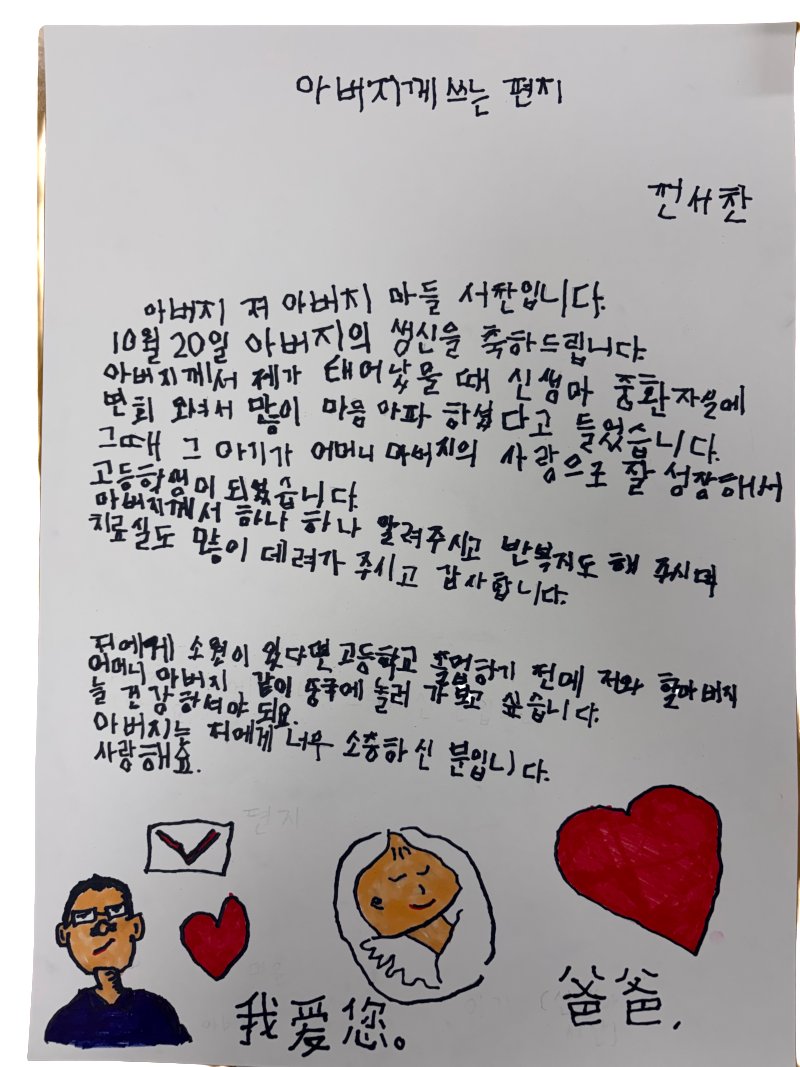 아버지께 쓰는 편지
전서찬
아버지 저 아버지 아들 서찬입니다.
10월 20일 아버지의 생신을 축하드립니다.
아버지께서 제가 태어났을 때 신생아 중환자실에
면회 와서 많이 마음 아파 하셨다고 들었습니다.
그때 그 아기가 어머니 아버지의 사랑으로 잘 성장해서
고등학생이 되었습니다.
아버지께서 하나 하나 알려주시고 반복지도 해 주시며
치료실도 많이 데려가 주시고 감사합니다.
저에게 소원이 있다면 고등학교 졸업하기 전에 저와 할아버지
어머니 아버지 같이 중국에 놀러 가보고 싶습니다.
늘 건강하셔야 되요.
아버지는 저에게 너무 소중하신 분입니다.
사랑해요.
편지
我爱您。
爸爸,